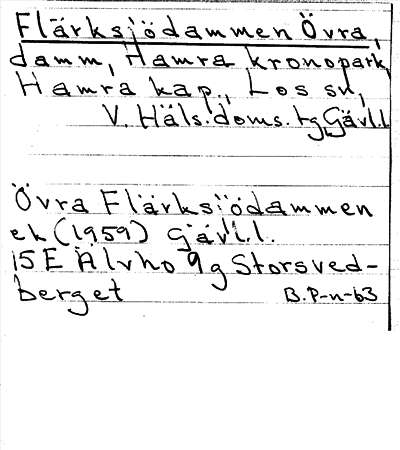 Flärksjödammen Övra,
damm, Hamra kronopark,
Hamra kap., Los sn,
V. Häls. doms. tg, Gävl.l.
Övra Flärksjödammen
ek (1959) Gävl.l.
15 E Älvho 9g Storsved-
berget B.P-n-63